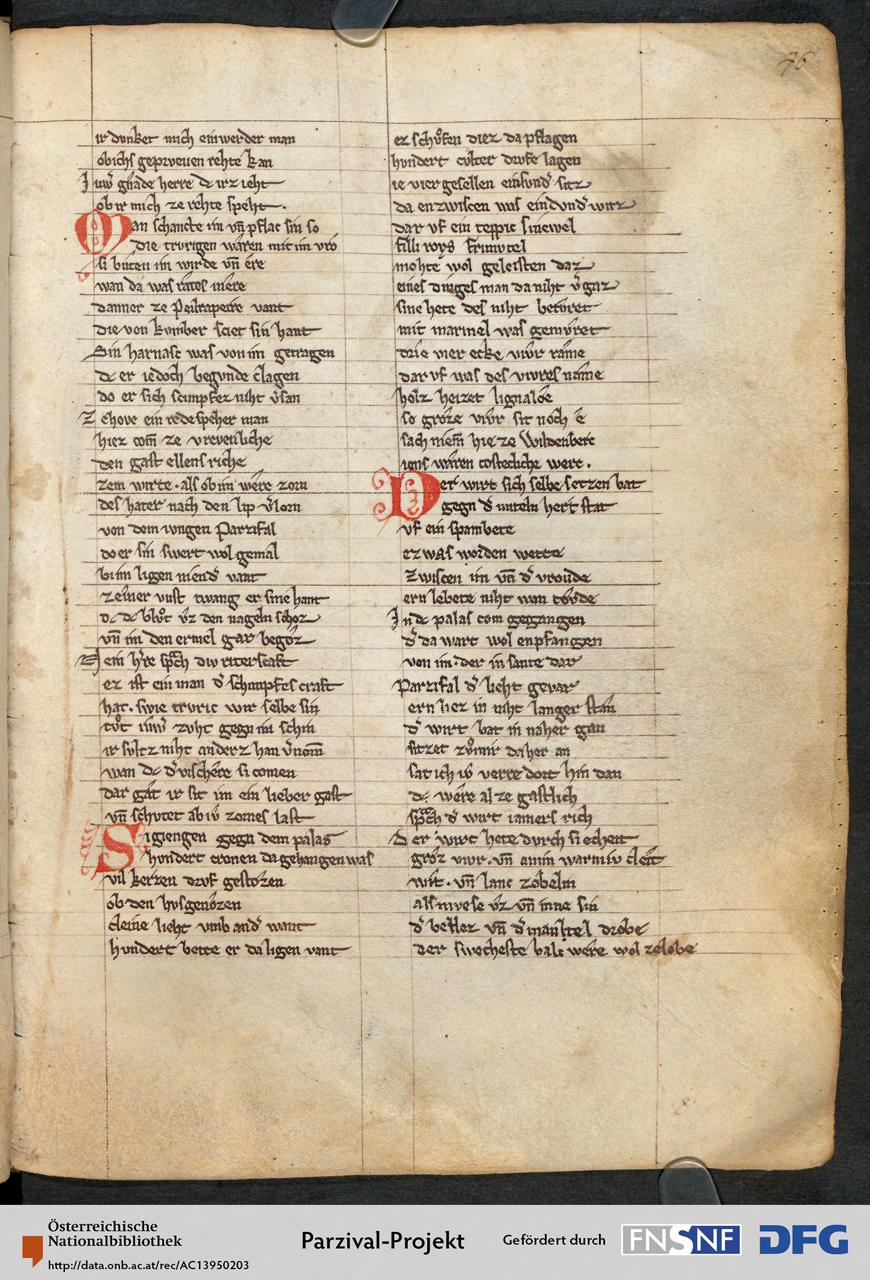 76
ir dvnket mich ein werder man
ob ichs geprveuen rehte kan
Iuwͣ gn̄ade herre dc irz ieht
ob ir mich ze rehte speht.
Man schancte im vn̄ pflac sin so
die trvrigen waren mit im vro
si buten im wirde vn̄ ere
wan da was rates mere
danner ze Peilrapeire vant
die von kvmber sciet sin hant
Sin harnasc was von im getragen
dc er iedoch begvnde clagen
do er sich scimpfez niht v̄san
Ze hove ein redespeher man
hiez com̄ ze vrevenliche
den gast ellens riche
zem wirte. als ob im were zorn
des hater nach den lip v̄lorn
von dem ivngen Parzifal
do er sin swert wol gemal
bi im ligen niend͛ vant
zeiner vust twang er sine hant
dc dc blůt vz den nageln schoz
vn̄ im den ermel gar begoz
Nein h̄re sp̄ch div riterscaft
ez ist ein man d͛ schimpfes craft
hat. swie trvric wir selbe sin
tůt iwͣ zvht gegn im schin
ir svltz niht anderz han v̄nom̄
wan dc d͛ vischere si comen
dar gat ir sit im ein lieber gast
vn̄ schvtet ab iv zornes last
Si giengen gegn dem palas
hvndert cronen da gehangen was
vil kerzen drvf gestozen
ob den hvsgenozen
cleine lieht vmb and͛ want
hvndert bette er da ligen vant
ez schůfen diez da pflagen
hvndert cvlter drvfe lagen
ie vier gesellen einsvnd͛ sitz
da enzwiscen was ein vnd͛ witz
dar vf ein teppic sinewel
filli roys frimvtel
mohte wol geleisten daz
eines dinges man da niht v̄gaz
sine hete des niht betvret
mit marmel was gemvret
drie vier ecke vivr rame
dar vf was des vivres name
holz heizet lignaloe
so groze vivr sit noch e
sach niem̄ hie ze Wildenberc
iens waren costecliche werc.
Der wirt sich selbe setzen bat
gegn d͛ mitteln hert stat
vf ein spanbete
ez was worden wette
zwiscen im vn̄ d͛ vroude
ern lebete niht wan tovde
In dc palas com gegangen
d͛ da wart wol enpfangen
von im. der in sante dar
Parzifal d͛ lieht gevar
ern liez in niht langer stan
d͛ wirt bat in naher gan
sitzet zůmir daher an
sat ich iv verre dort hin dan
dc were al ze gastlich
sp̄ch d͛ wirt iamers rich
Der wirt hete dvrch siecheit
groz vivr. vn̄ an im warmiv cleit
wit. vn̄ lanc zobelin
als mvese vz vn̄ inne sin
d͛ bellez vn̄ d͛ mantel drobe
der swecheste balc were wol zelobe
Österreichische
Nationalbibliothek
http://data.onb.ac.at/rec/AC13950203
Parzival-Projekt
Gefördert durch
FNSNF
DFG